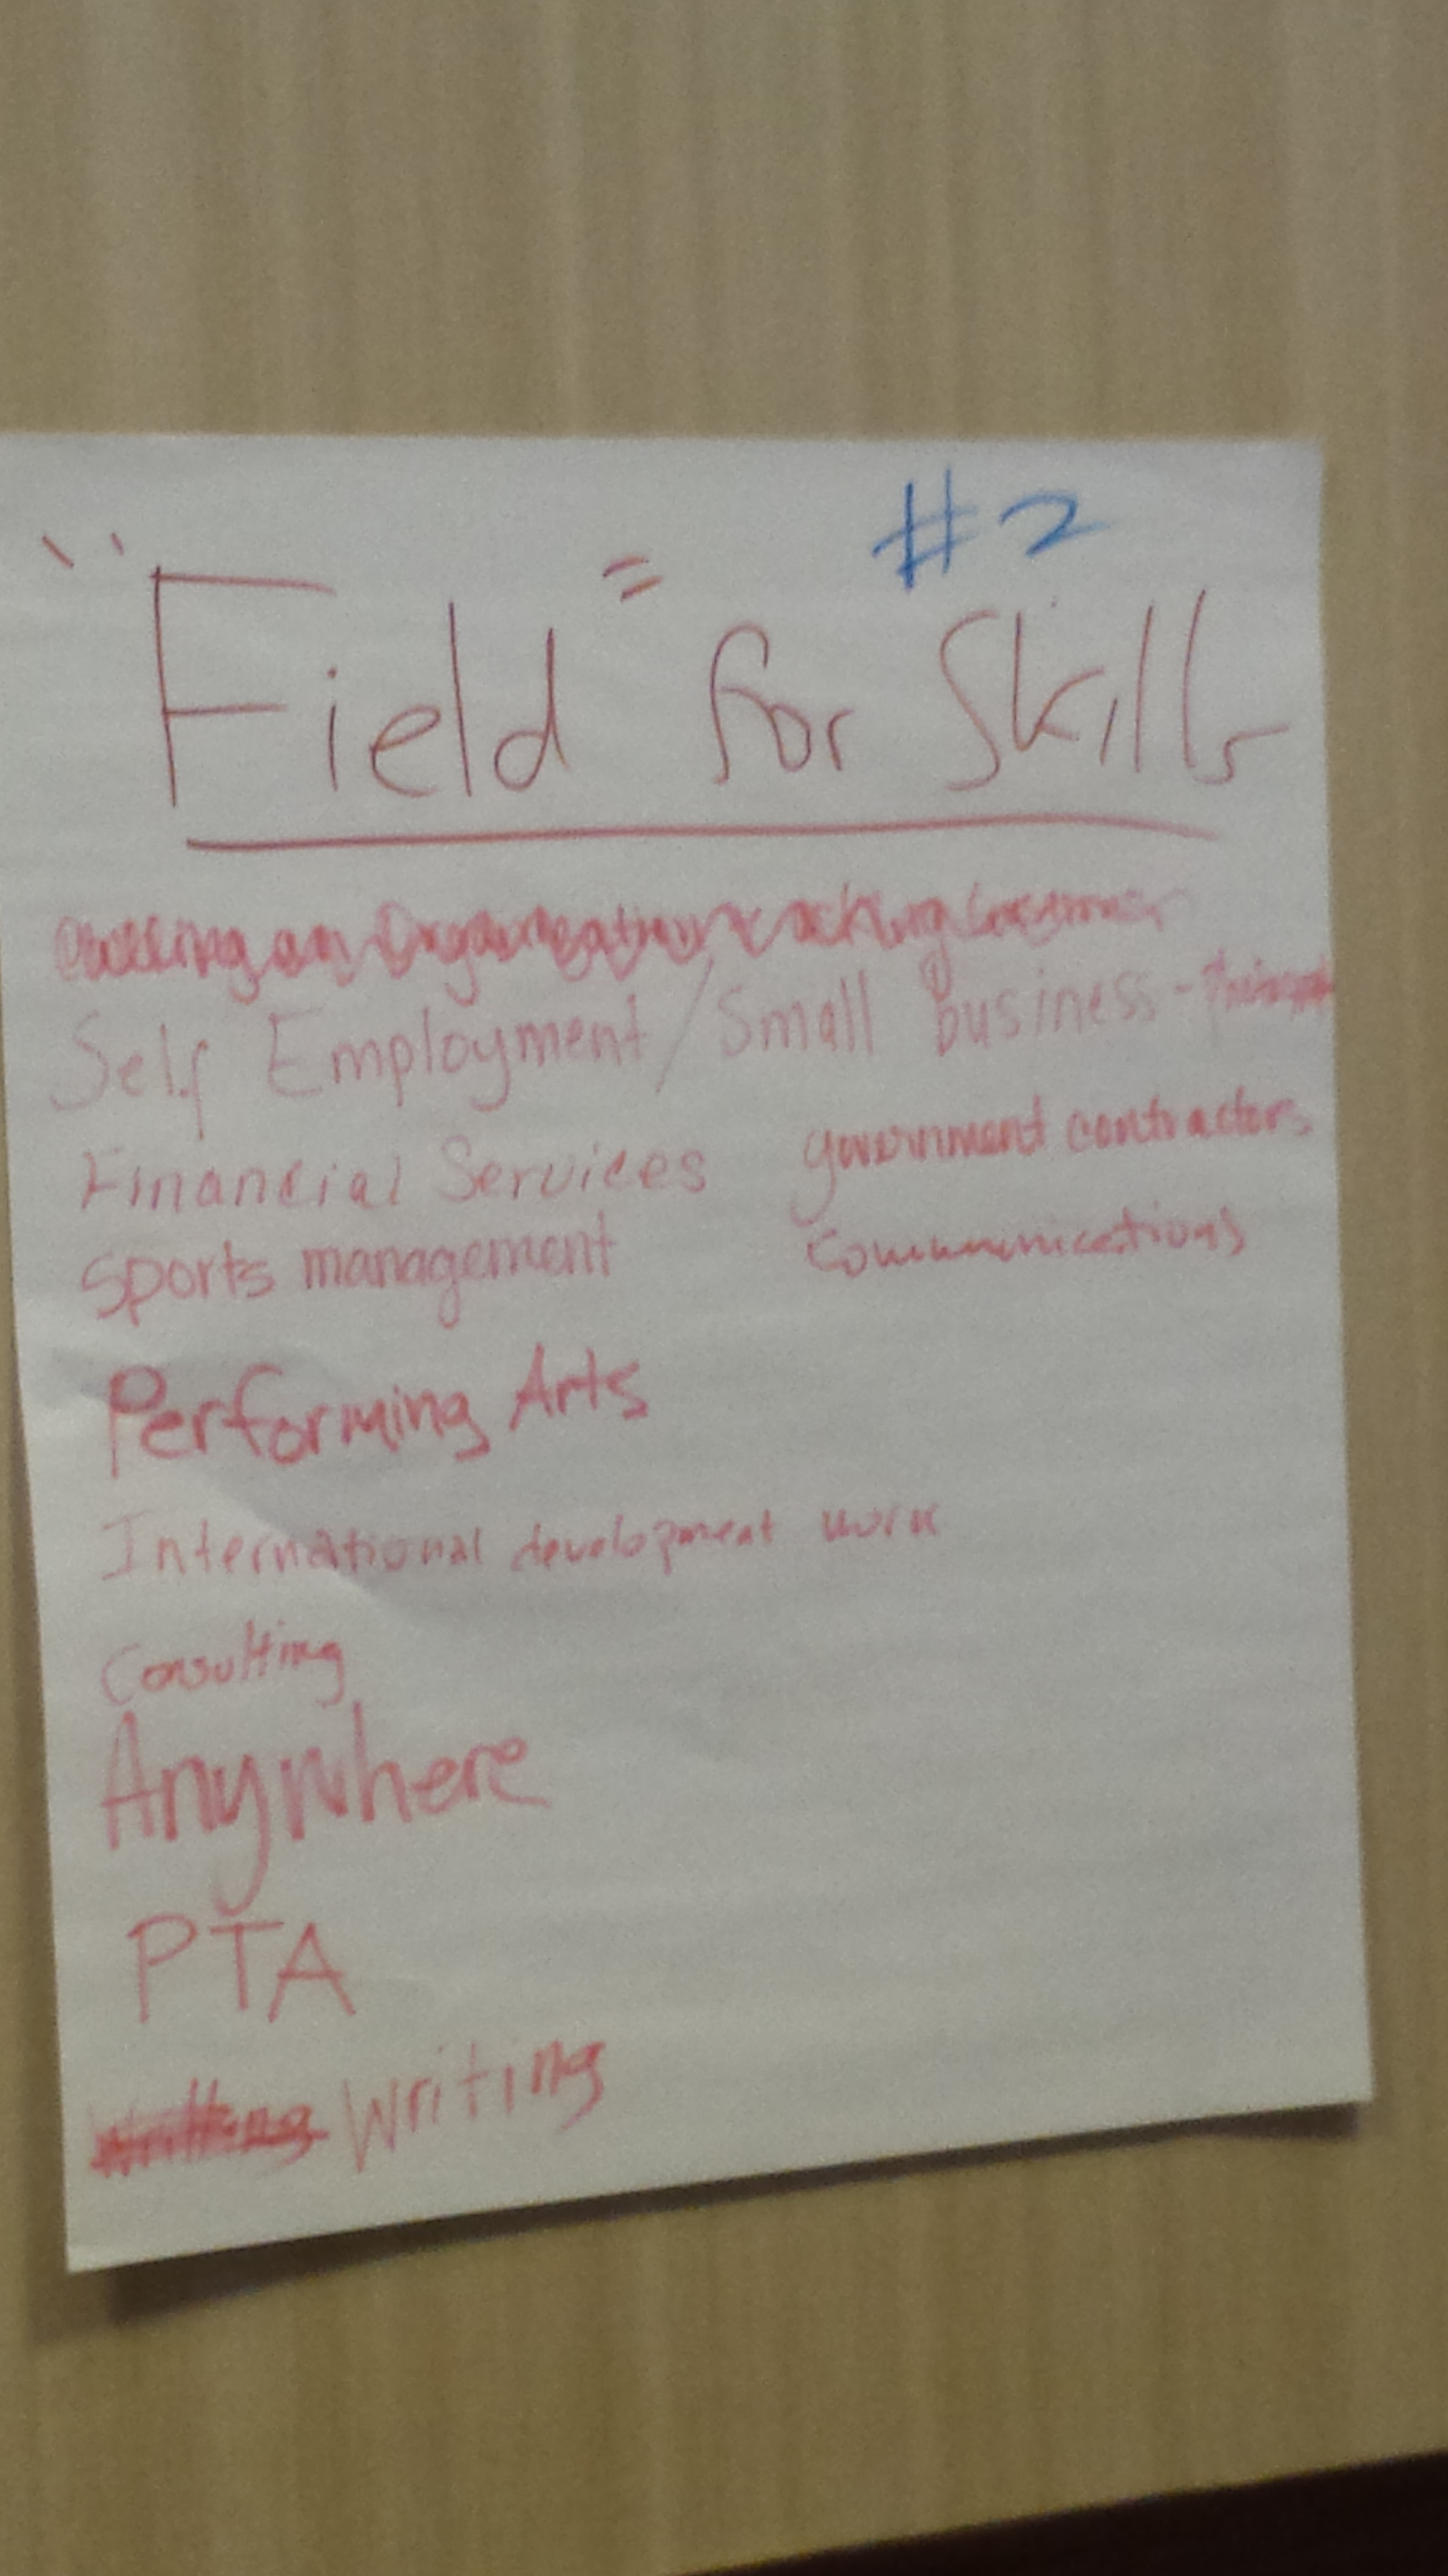 #2
"Field" for Skills
Self Employment/Small business -
Financial Services
government contractors
Sports management
Communications
Performing Arts
International development work
Consulting
Anywhere
PTA
Writing